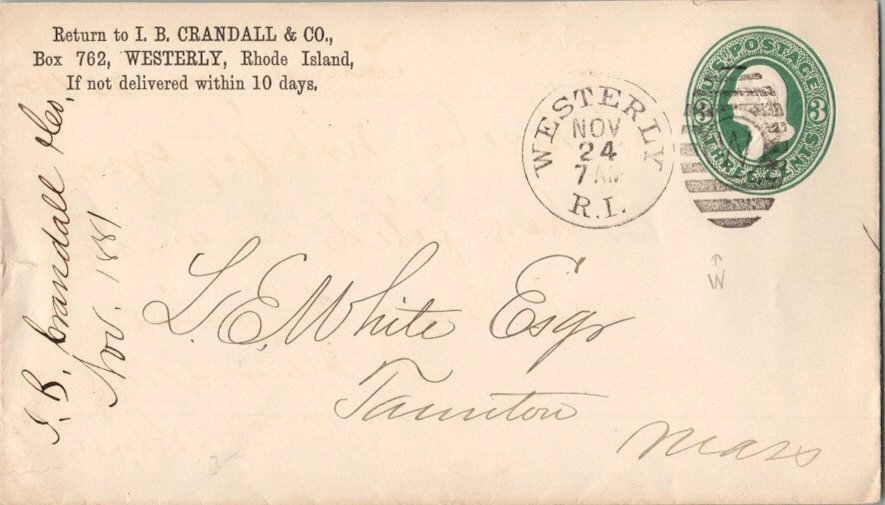 Return to I. B. CRANDALL & CO.,
Box 762, WESTERLY, Rhode Island,
If not delivered within 10 days.
U.S. POSTAGE
3 3
THREE CENTS
WESTERLY
NOV
24
7 AM
R.I.
W
I. B. Crandall & Co.
Nov. 1881
L. E. White Esqr
Taunton
Mass
3